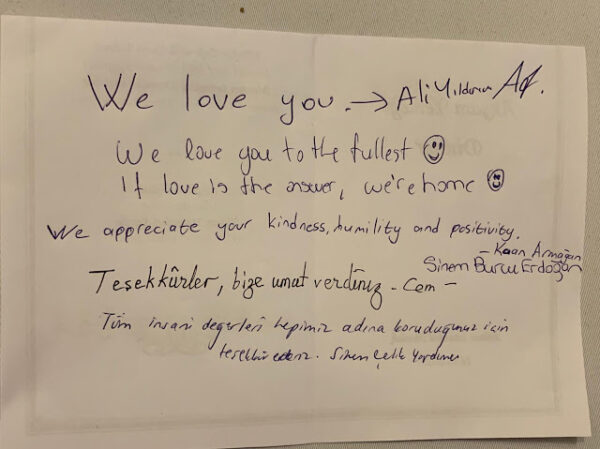 We love you. → Ali Yıldırım
We love you to the fullest ☺
If love is the answer, we're home ☺
We appreciate your kindness, humility and positivity.
- Kaan Armağan
Sinem Burcu Erdoğan
Teşekkürler, bize umut verdiniz - Cem -
Tüm insani değerleri hepimiz adına koruduğunuz için
teşekkür ederiz. Sinem Çelik Yardımcı